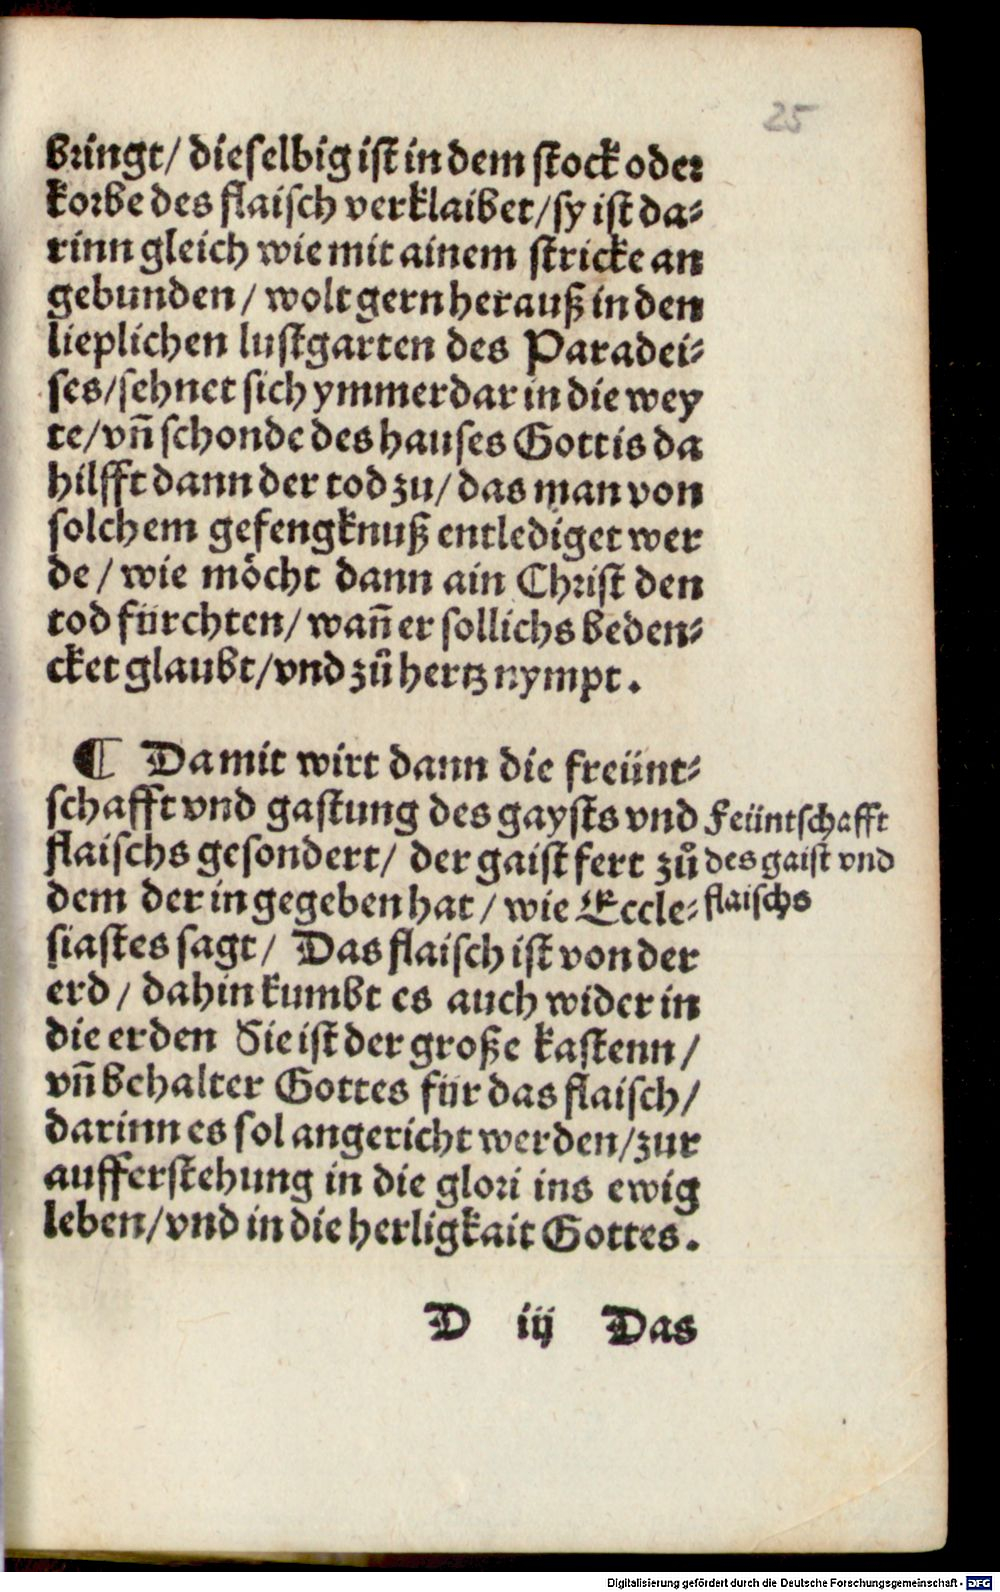 25
bringt/ dieselbig ist in dem stock oder
korbe des flaisch verklaibet/sy ist da⸗
rinn gleich wie mit ainem stricke an
gebunden/ wolt gern herauß in den
lieplichen lustgarten des Paradei⸗
ses/sehnet sich ymmerdar in die wey
te/vñ schonde des hauses Gottis da
hilfft dann der tod zu/ das man von
solchem gefengknuß entlediget wer
de/ wie möcht dann ain Christ den
tod fürchten/ wañ er sollichs beden⸗
cket glaubt/vnd zů hertz nympt.
¶ Damit wirt dann die freünt⸗
schafft vnd gastung des gaysts vnd
flaischs gesondert/ der gaist fert zů
dem der in gegeben hat/ wie Eccle⸗
siastes sagt/ Das flaisch ist von der
erd/ dahin kumbt es auch wider in
die erden Sie ist der große kastenn/
vñ behalter Gottes für das flaisch/
darinn es sol angericht werden/zur
aufferstehung in die glori ins ewig
leben/vnd in die herligkait Gottes.
Feüntschafft
des gaist vnd
flaischs
D iij Das
Digitalisierung gefördert durch die Deutsche Forschungsgemeinschaft - DFG